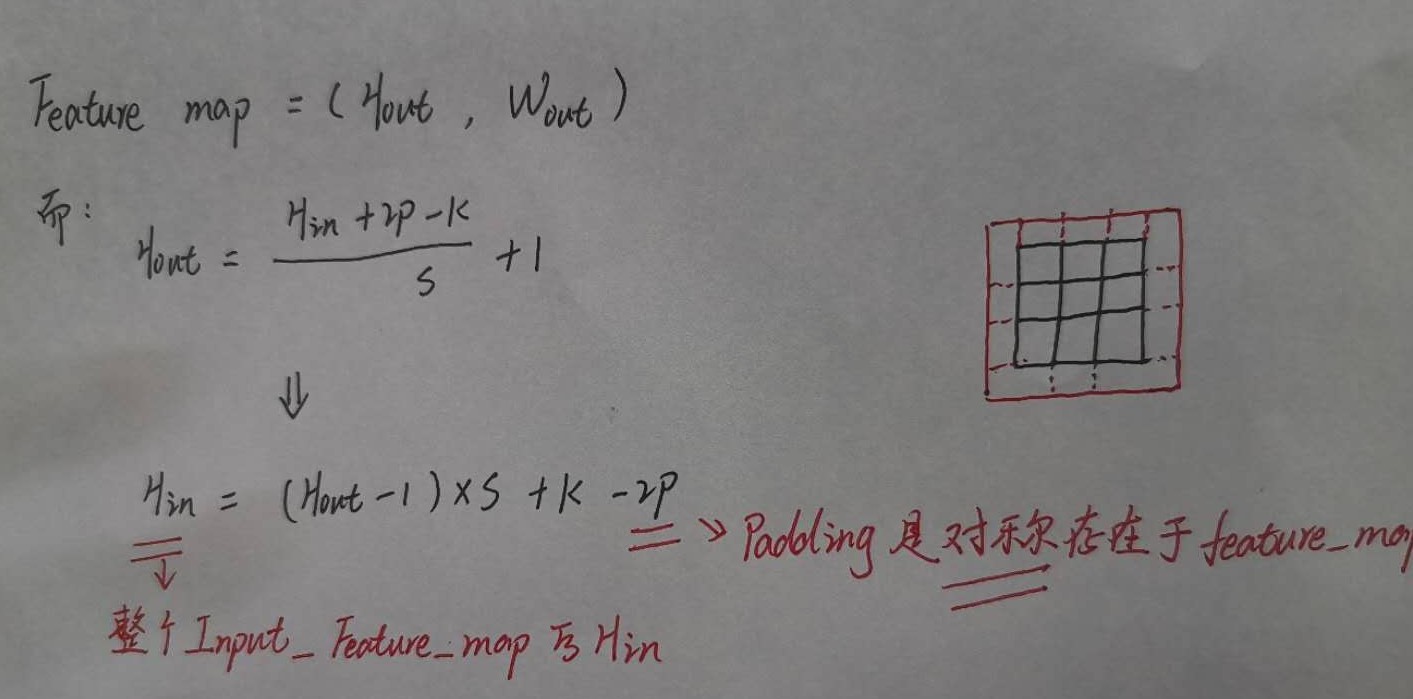 Feature map = ( Hout , Wout )
而:
Hout = (Hin + 2P - K) / S + 1
⇓
Hin = (Hout - 1) × S + K - 2P
Padding 是对称存在于 feature_map
整个 Input_Feature_map 为 Hin